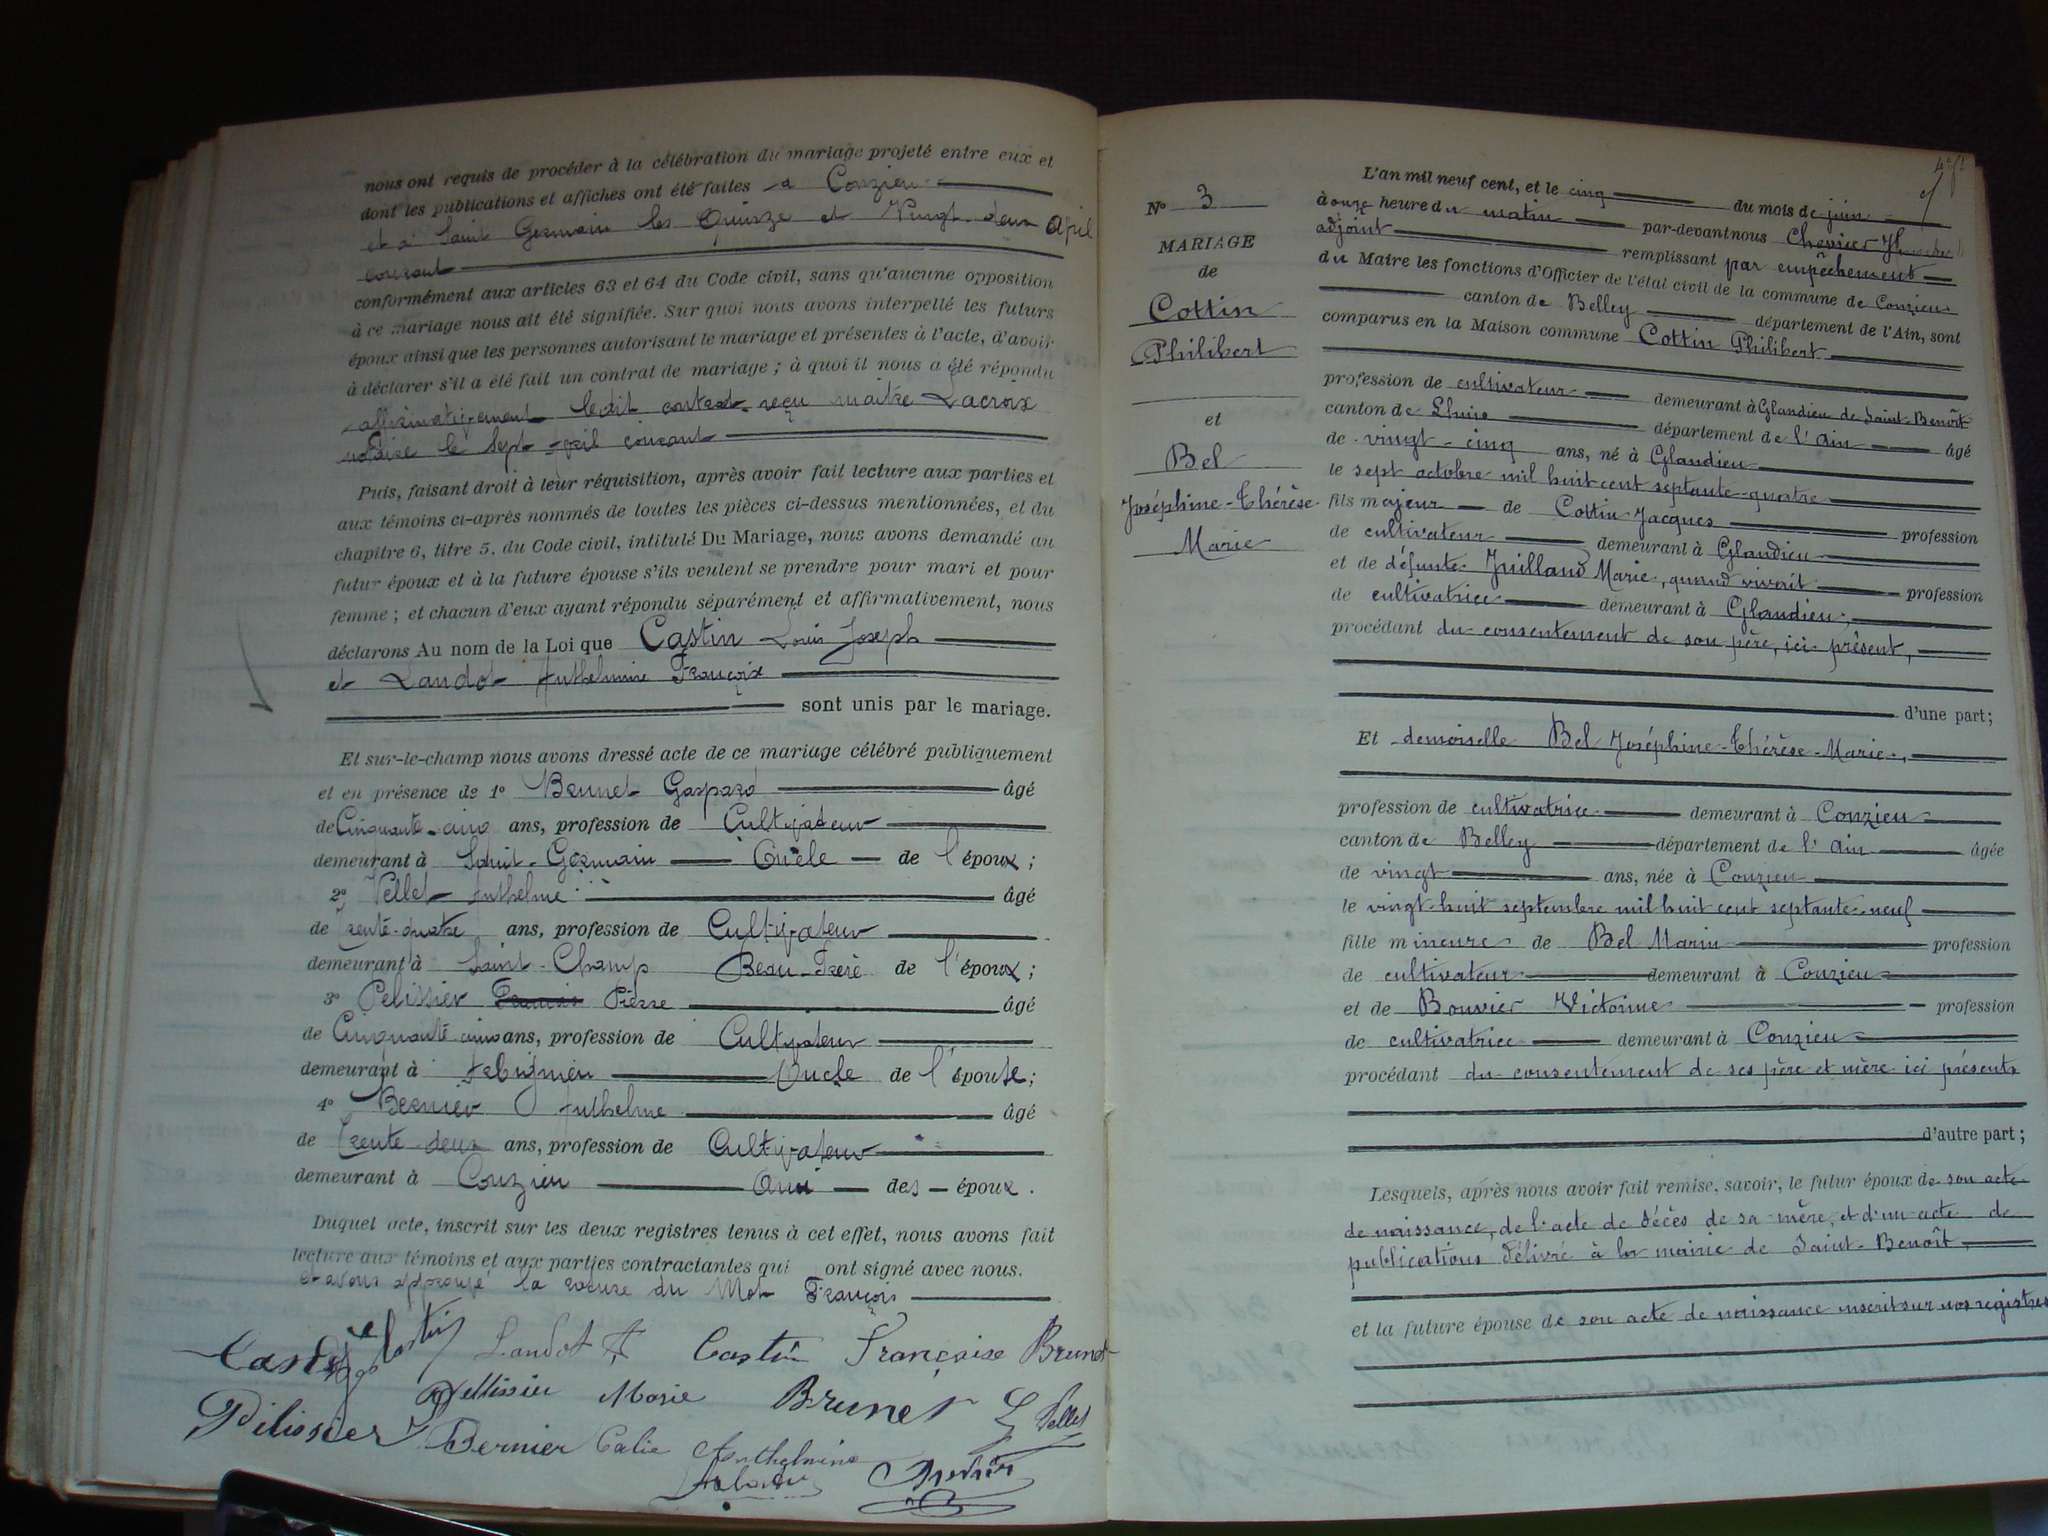 nous ont requis de procéder à la célébration du mariage projeté entre eux et
dont les publications et affiches ont été faites à Conzieu
et à Saint Germain les Quinze et Vingt deux April
courant
conformément aux articles 63 et 64 du Code civil, sans qu'aucune opposition
à ce mariage nous ait été signifiée. Sur quoi nous avons interpellé les futurs
époux ainsi que les personnes autorisant le mariage et présentes à l'acte, d'avoir
à déclarer s'il a été fait un contrat de mariage ; à quoi il nous a été répondu
affirmativement ledit contrat reçu maître Lacroix
notaire le Sept april courant
Puis, faisant droit à leur réquisition, après avoir fait lecture aux parties et
aux témoins ci-après nommés de toutes les pièces ci-dessus mentionnées, et du
chapitre 6, titre 5, du Code civil, intitulé Du Mariage, nous avons demandé au
futur époux et à la future épouse s'ils veulent se prendre pour mari et pour
femme ; et chacun d'eux ayant répondu séparément et affirmativement, nous
déclarons Au nom de la Loi que Castin Louis Joseph
et Landot Anthelmine Françoise
sont unis par le mariage.
Et sur-le-champ nous avons dressé acte de ce mariage célébré publiquement
et en présence de 1° Brunet Gaspard âgé
de Cinquante-cinq ans, profession de Cultivateur
demeurant à Saint-Germain Oncle de l'époux ;
2° Vellet Anthelme âgé
de trente-quatre ans, profession de Cultivateur
demeurant à Saint-Champ Beau-Frère de l'époux ;
3° Pelissier François Pierre âgé
de Cinquante cinq ans, profession de Cultivateur
demeurant à Oncle de l'épouse ;
4° Bernier Anthelme âgé
de trente-deux ans, profession de Cultivateur
demeurant à Conzieu Ami des époux.
Duquel acte, inscrit sur les deux registres tenus à cet effet, nous avons fait
lecture aux témoins et aux parties contractantes qui ont signé avec nous.
et avons approuvé la rature du Mot François
Castin Landot A Castin Françoise Brunet
Pellissier Marie Brunet Vellet
Pélissier Bernier Calie Anthelmine
N° 3
MARIAGE
de
Cottin
Philibert
et
Bel
Joséphine-Thérèse
Marie
L'an mil neuf cent, et le cinq du mois de juin
à onze heure du matin par-devant nous Chevrier
adjoint remplissant par empêchement
du Maire les fonctions d'Officier de l'état civil de la commune de Conzieu
canton de Belley département de l'Ain, sont
comparus en la Maison commune Cottin Philibert
profession de cultivateur demeurant à Glandieu de Saint-Benoît
canton de Lhuis département de l'Ain âgé
de vingt-cinq ans, né à Glandieu
le sept octobre mil huit cent septante-quatre
fils majeur de Cottin Jacques profession
de cultivateur demeurant à Glandieu
et de défunte Juilland Marie, quand vivait profession
de cultivatrice demeurant à Glandieu,
procédant du consentement de son père, ici présent,
d'une part;
Et demoiselle Bel Joséphine-Thérèse-Marie,
profession de cultivatrice demeurant à Conzieu
canton de Belley département de l'Ain âgée
de vingt ans, née à Conzieu
le vingt-huit septembre mil huit cent septante-neuf
fille mineure de Bel Marin profession
de cultivateur demeurant à Conzieu
et de Bouvier Victorine profession
de cultivatrice demeurant à Conzieu
procédant du consentement de ses père et mère ici présents
d'autre part ;
Lesquels, après nous avoir fait remise, savoir, le futur époux de son acte
de naissance, de l'acte de décès de sa mère, et d'un acte de
publications délivré à la mairie de Saint-Benoît,
et la future épouse de son acte de naissance inscrit sur nos registres